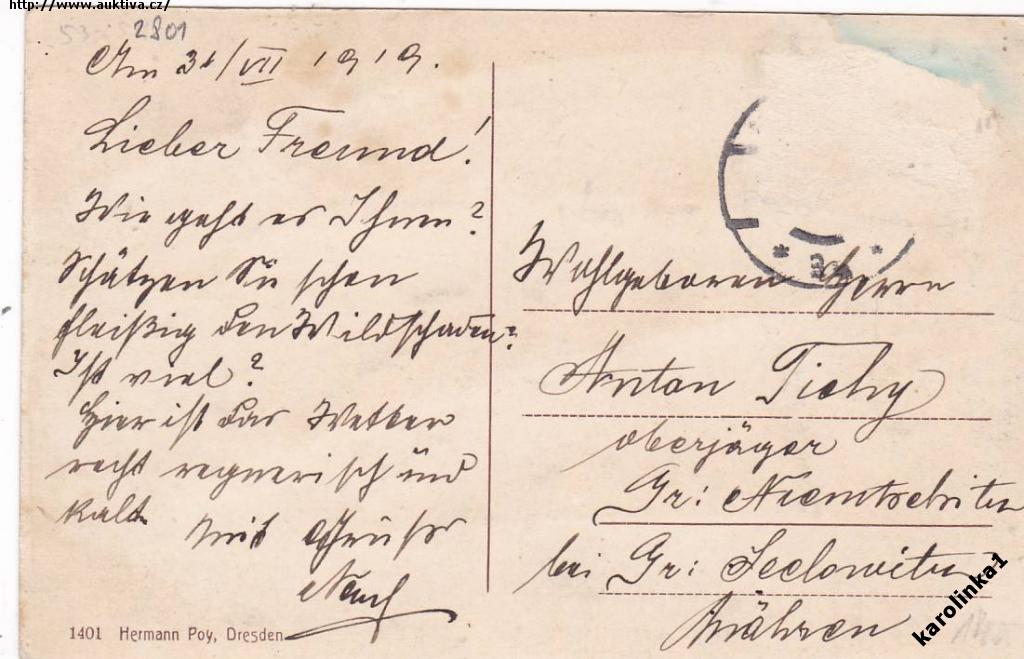 http://www.auktiva.cz/
2801
Am 31/VII 1919.
Lieber Freund!
Wie geht es Ihnen?
Schätzen Sie schon
fleißig den Wildschaden?
Ist viel?
Hier ist das Wetter
recht regnerisch und
kalt.
Mit Grüße
1401 Hermann Poy, Dresden
Wohlgeboren Herrn
Anton Tichy
oberjäger
Gr: Niemtschitz
bei Gr: Seelowitz
Mähren
karolinka1